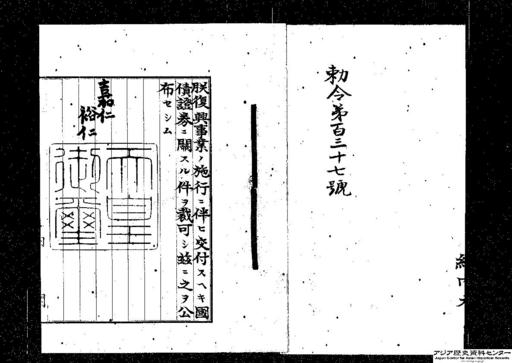 勅令第百三十七號
朕復興事業ノ施行ニ伴ヒ交付スヘキ國
債證券ニ關スル件ヲ裁可シ茲ニ之ヲ公
布セシム
嘉仁
裕仁
天皇
御璽
アジア歴史資料センター
Japan Center for Asian Historical Records